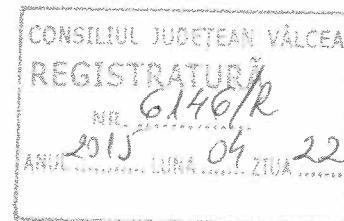 CONSILIUL JUDEȚEAN VÂLCEA
REGISTRATURĂ
NR. 6146/R
ANUL 2015 LUNA 04 ZIUA 22